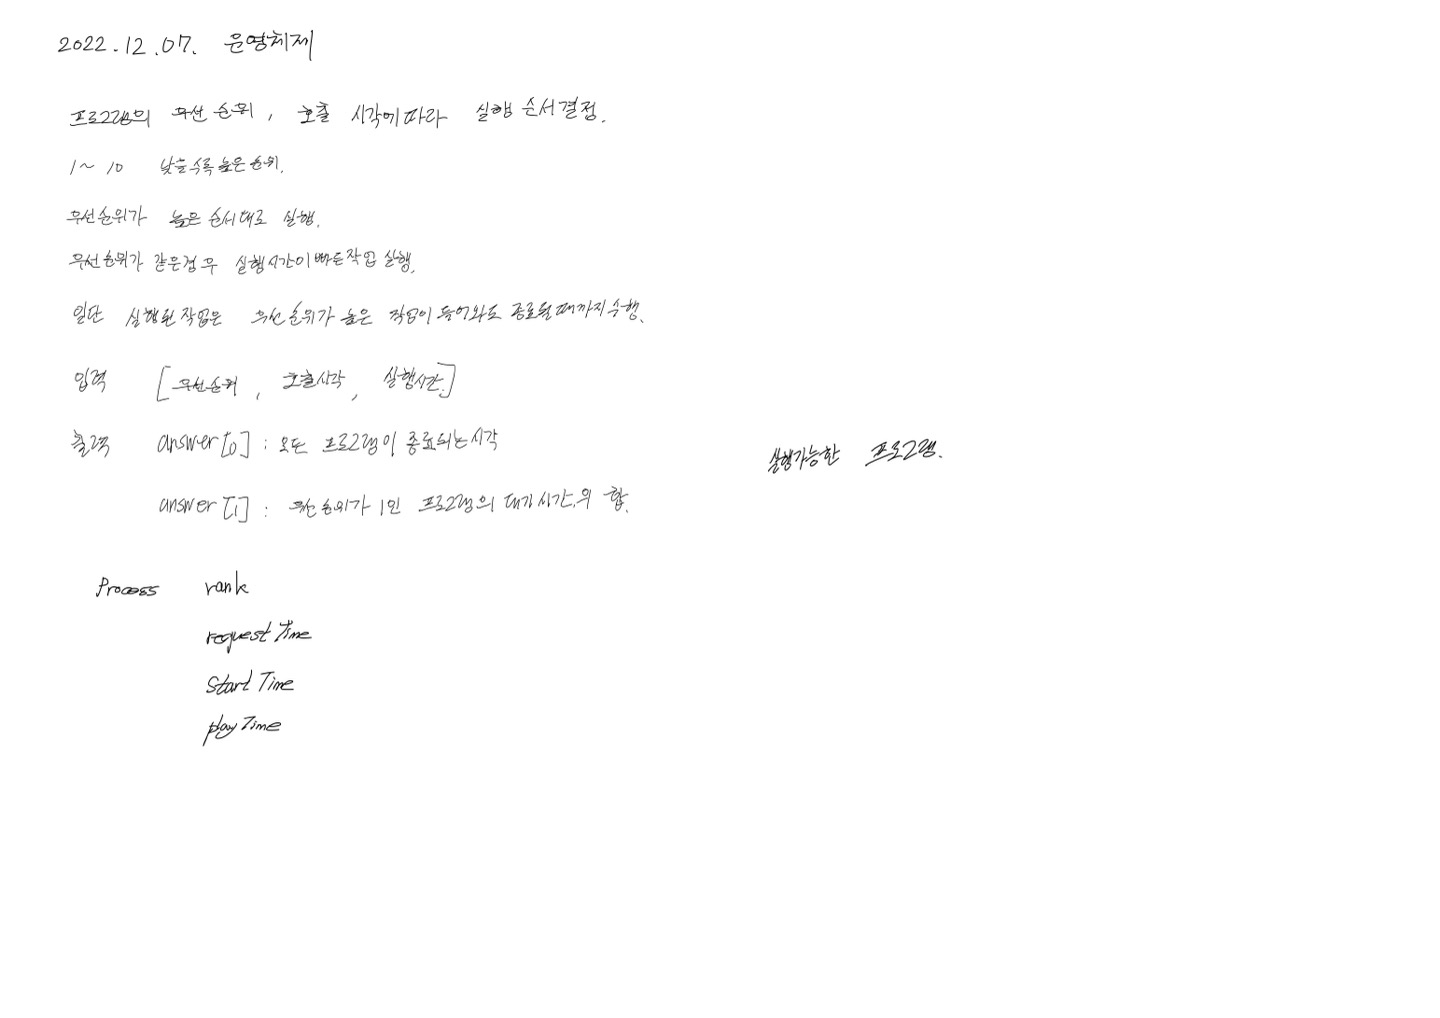 2022.12.07. 운영체제
프로그램의 우선순위, 호출 시각에 따라 실행 순서 결정.
1~10 낮을수록 높은순위.
우선순위가 높은 순서대로 실행.
우선순위가 같은경우 실행시간이 빠른작업 실행.
일단 실행된 작업은 우선순위가 높은 작업이 들어와도 종료될때까지 수행.
입력 [우선순위, 호출시각, 실행시간]
출력 answer[0] : 모든 프로그램이 종료되는시각
실행가능한 프로그램.
answer[1] : 우선순위가 1인 프로그램의 대기시간.의 합.
Process rank
request Time
start Time
play Time